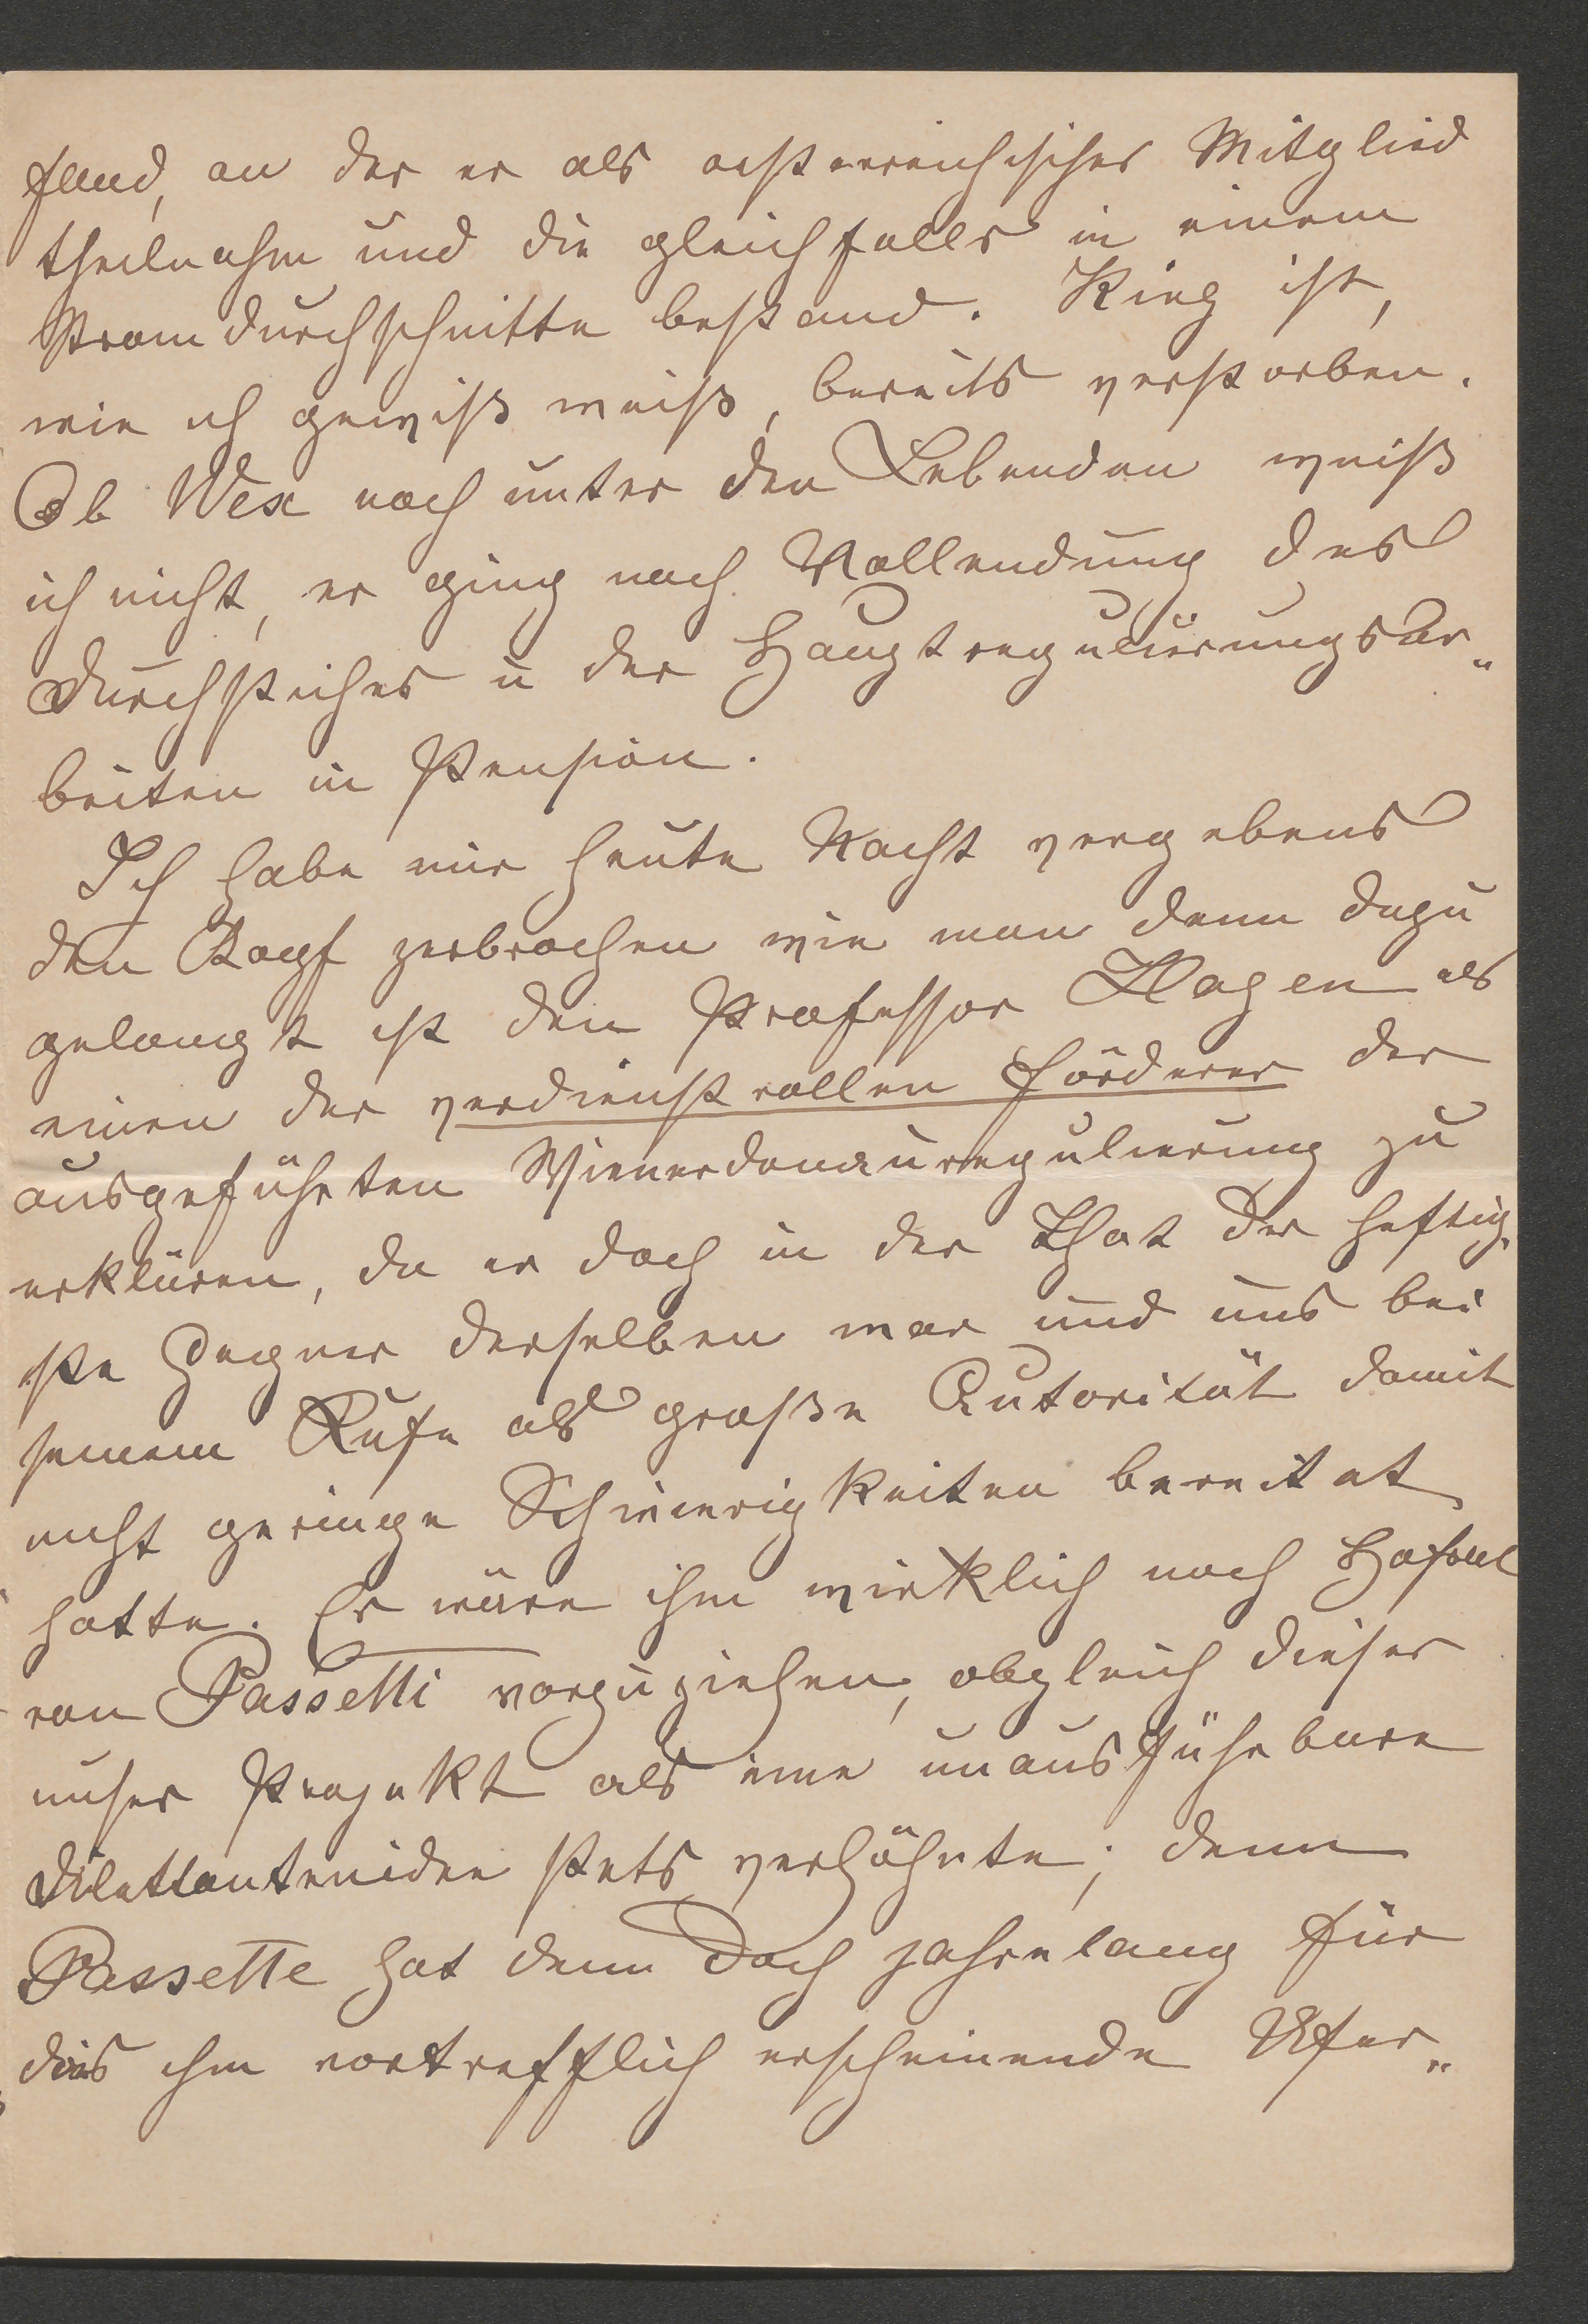 fand, an der er als oesterreichisches Mitglied
theilnahm und die gleichfalls in einem
Stromdurchschnitte bestand. Kink ist,
wie ich gewiß weiß, bereits verstorben.
Ob Wex noch unter den Lebenden weiß
ich nicht, er ging nach Vollendung des
Durchstiches u der Hauptregulierungsar„
beiten in Pension.
Ich habe mir heute Nacht vergebens
den Kopf zerbrochen wie man denn dazu
gelangt ist den Professor Hagen als
einen der verdienstvollen Förderer der
ausgeführten Wienerdonauregulierung zu
erklären, da er doch in der That der heftig„
ste Gegner derselben war und uns bei
seinem Rufe als große Autorität damit
nicht geringe Schwierigkeiten bereitet
hatte. Es wäre ihm wirklich noch
von Passetti vorzuziehen, obgleich dieser
unser Projekt als eine unausführbare
Dilettantenidee stets verhöhnte; denn
Passette hat denn doch jahrelang für
das ihm vortrefflich erscheinende Ufer„